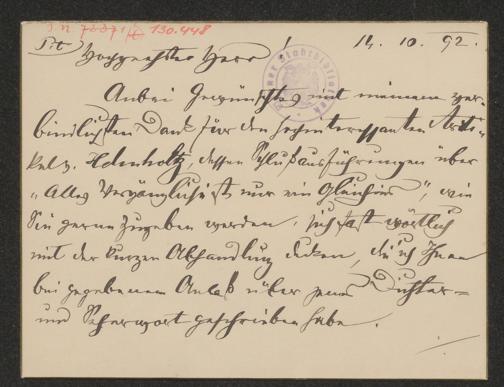 I.N. 130.448
P.t. Hochgeehrter Herr! 14. 10. 92.
Anbei Gewünschtes mit meinem ver-
bindlichsten Dank für den hochinteressanten Arti-
kel v. Helmholtz, dessen Schlußausführungen über
„Alles Vergängliche ist nur ein Gleichnis", wie
Sie gerne zugeben werden, sich fast wörtlich
mit der kurzen Abhandlung decken, die ich Ihnen
bei gegebenem Anlaß über jenes Dichter-
und Seherwort geschrieben habe.